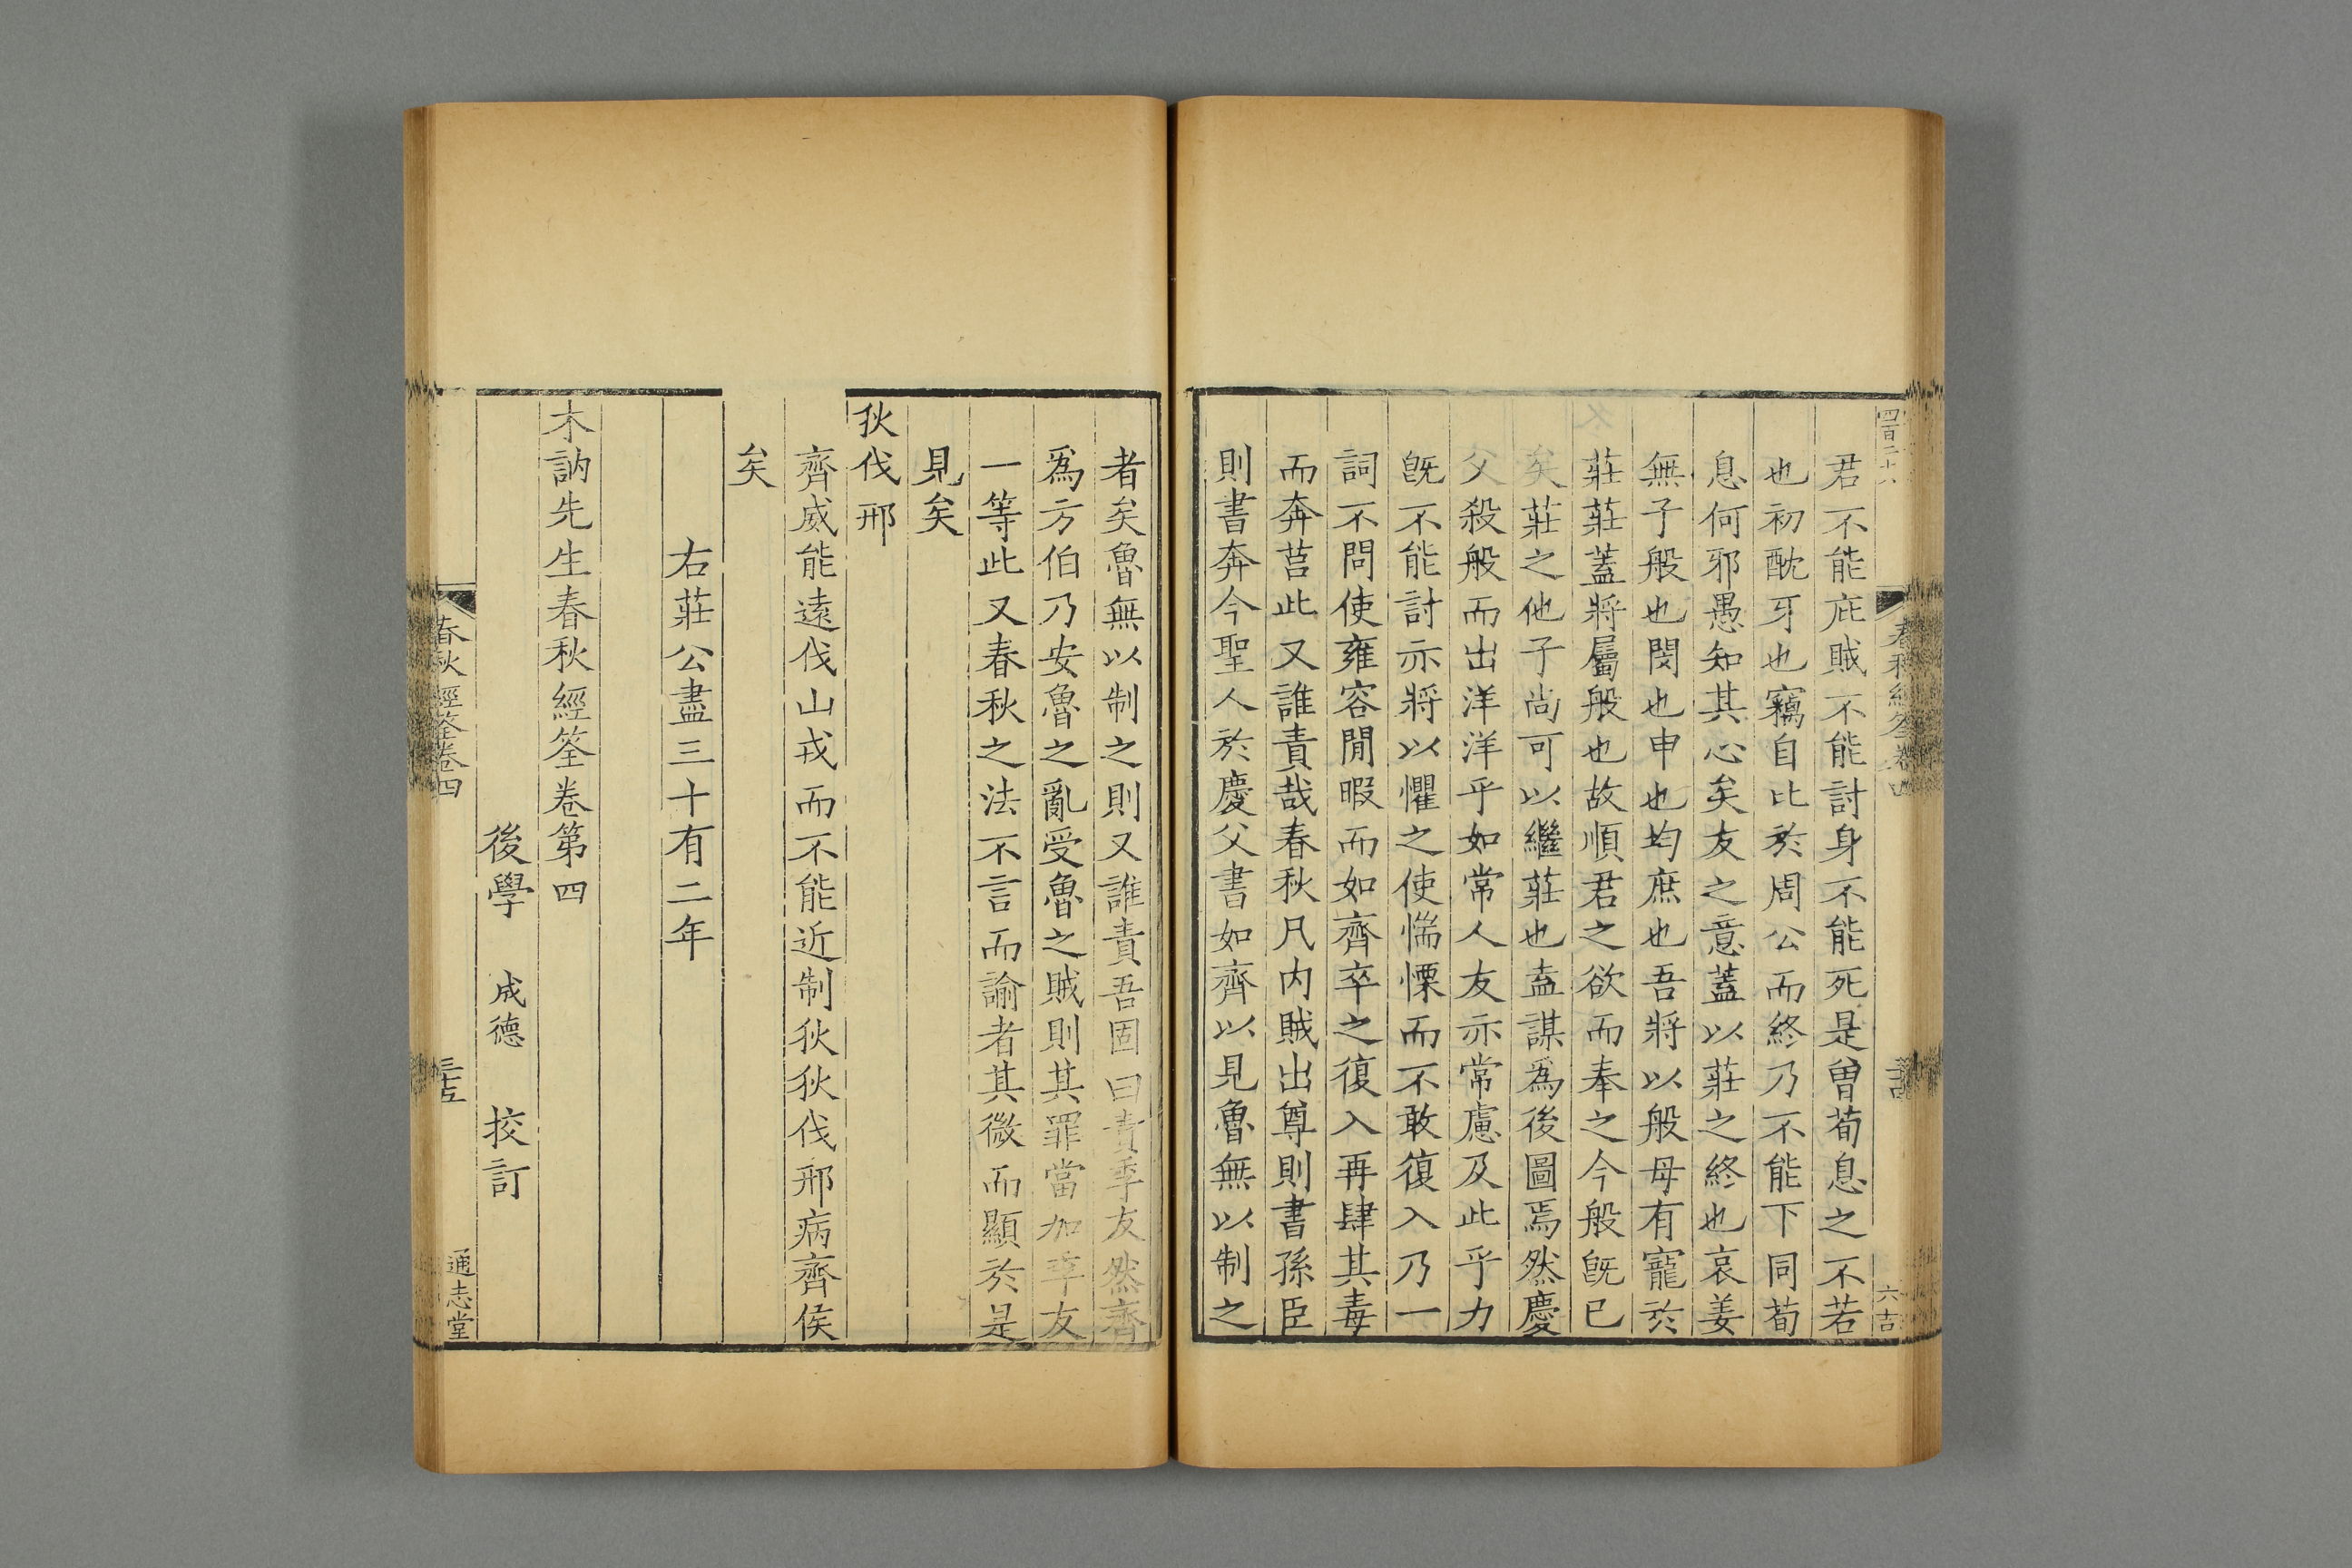 君不能庇賊不能討身不能死是曾荀息之不若
也初酖牙也竊自比於周公而終乃不能下同荀
息何邪愚知其心矣友之意蓋以莊之終也哀姜
無子般也閔也申也均庶也吾將以般母有寵於
莊莊蓋將屬般也故順君之欲而奉之今般旣已
矣莊之他子尚可以繼莊也盍謀爲後圖焉然慶
父殺般而出洋洋乎如常人友亦常慮及此乎力
旣不能討亦將以懼之使惴慄而不敢復入乃一
詞不問使雍容閒暇而如齊卒之復入再肆其毒
而奔莒此又誰責哉春秋凡内賊出尊則書孫臣
則書奔今聖人於慶父書如齊以見魯無以制之
六吉
者矣魯無以制之則又誰責吾固曰責季友然齊
爲方伯乃安魯之亂受魯之賊則其罪當加季友
一等此又春秋之法不言而諭者其微而顯於是
見矣
狄伐邢
齊威能遠伐山戎而不能近制狄狄伐邢病齊侯
矣
右莊公盡三十有二年
木訥先生春秋經筌卷第四
後學 成德 挍訂
春秋經筌卷四
三十五
通志堂